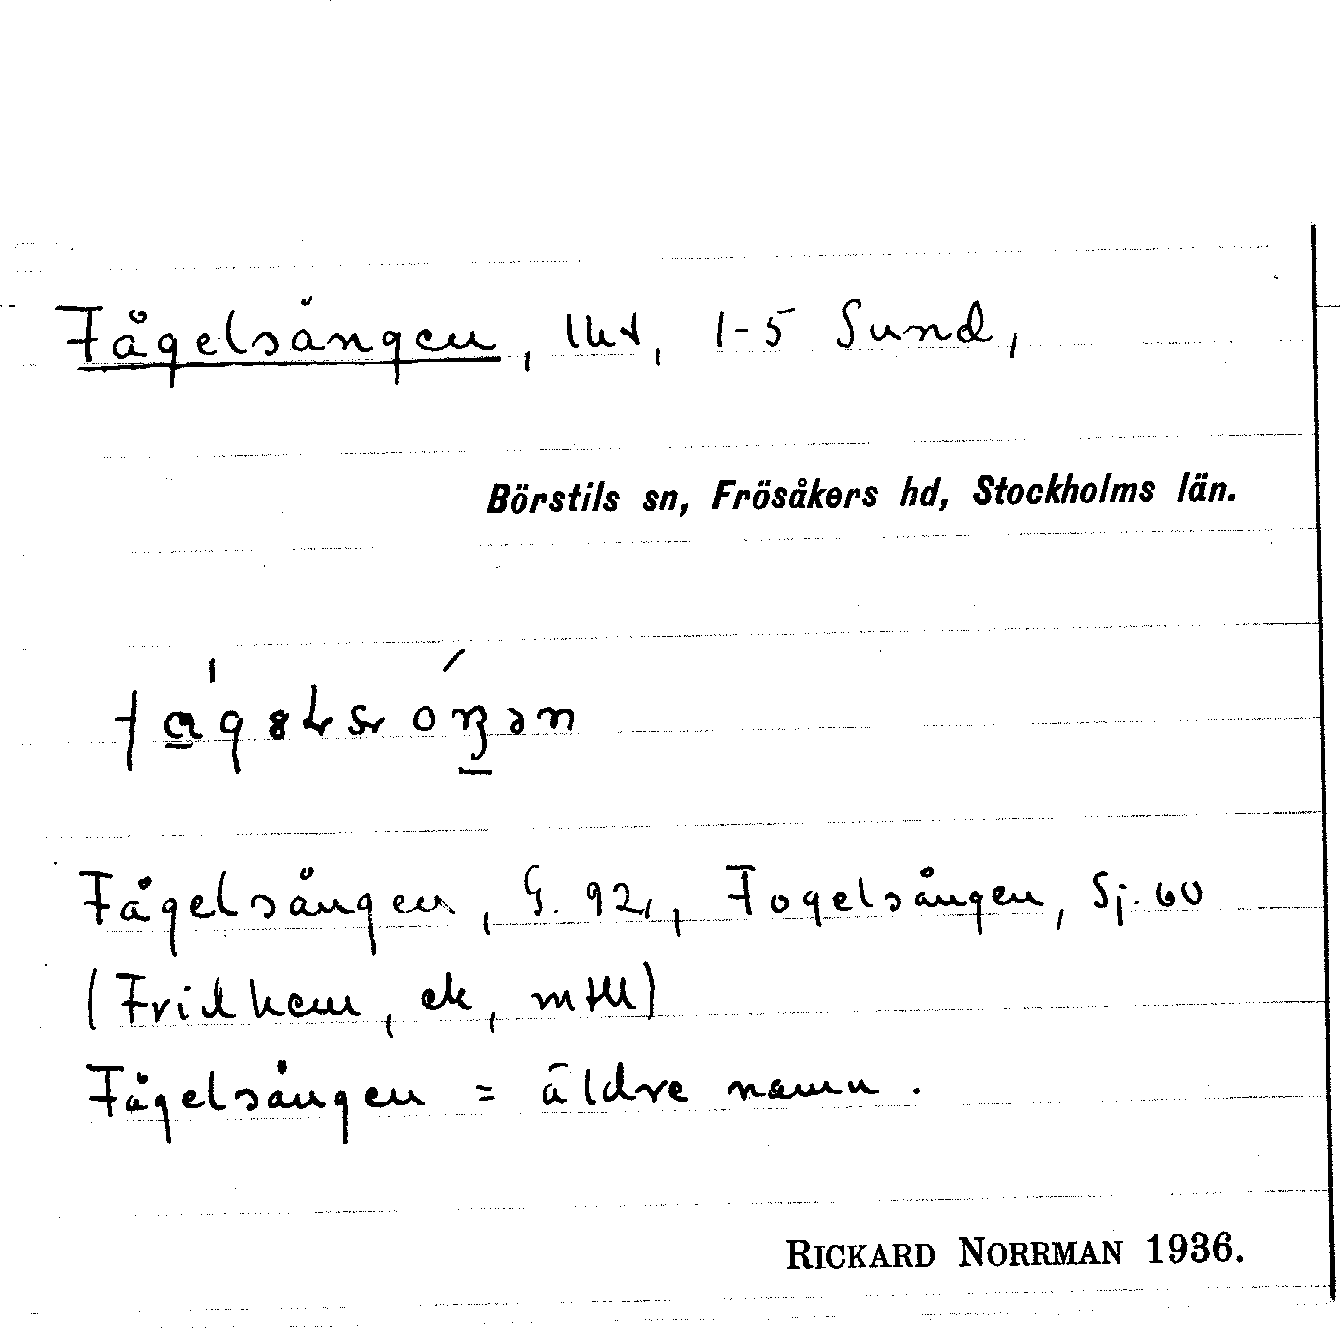 Fågelsången, lht, 1-5 Sund,
Börstils sn, Frösåkers hd, Stockholms län.
Fågelsången, G. 92, Fogelsången, Sj. 60
(Fridhem, ek, mtll)
Fågelsången = äldre namn.
RICKARD NORRMAN 1936.